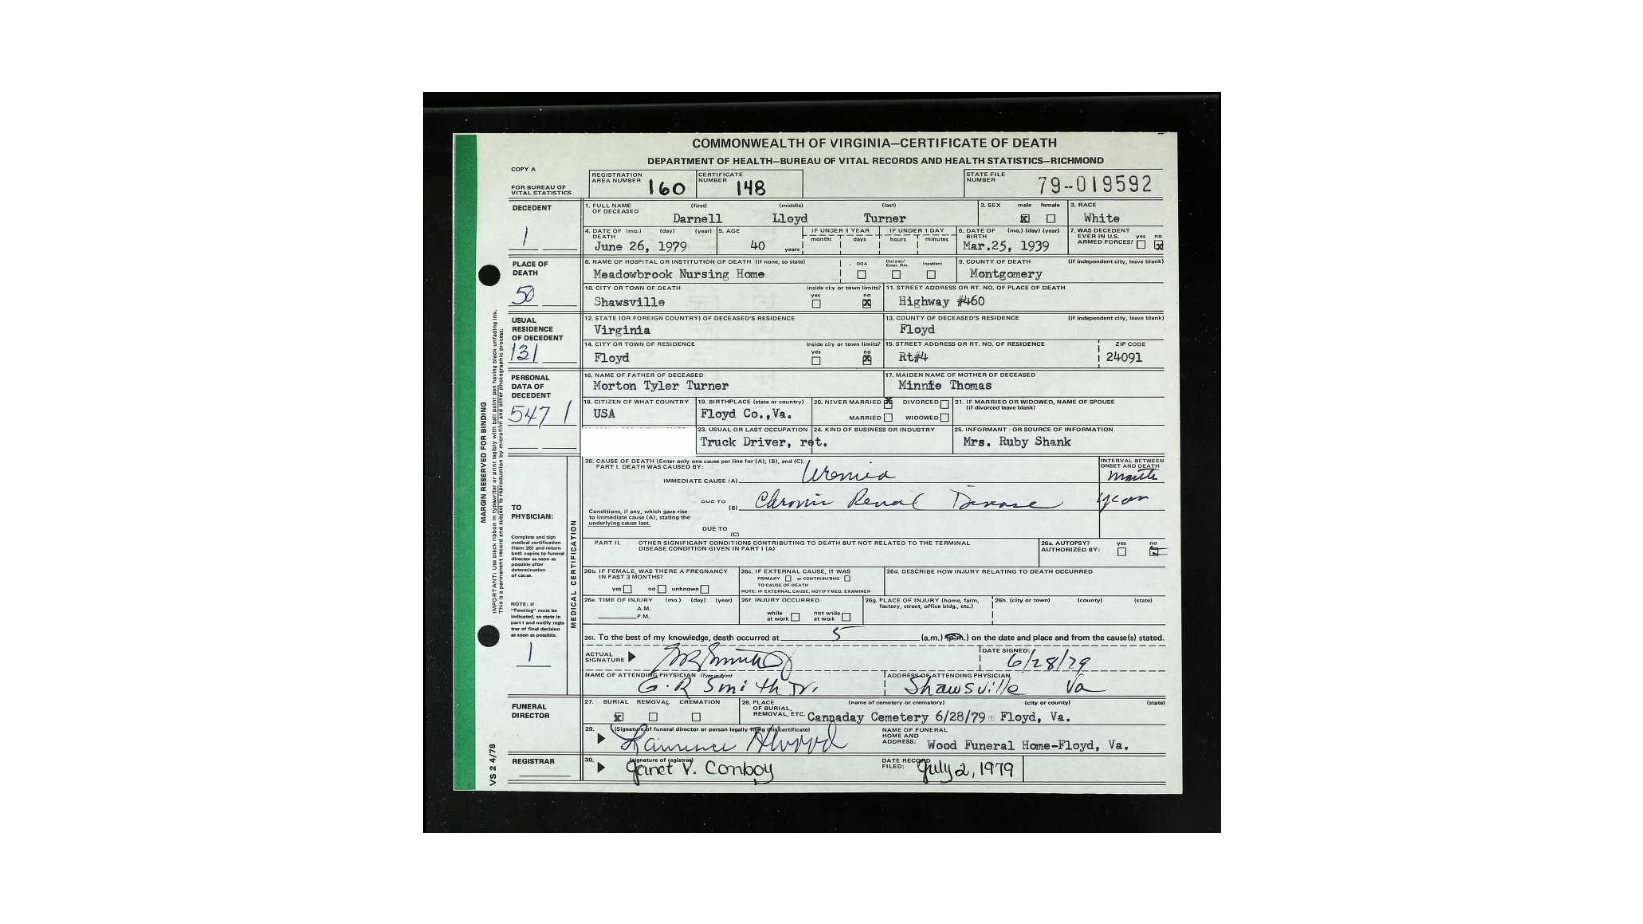 COMMONWEALTH OF VIRGINIA—CERTIFICATE OF DEATH
DEPARTMENT OF HEALTH—BUREAU OF VITAL RECORDS AND HEALTH STATISTICS—RICHMOND
COPY A
FOR BUREAU OF VITAL STATISTICS
REGISTRATION AREA NUMBER 160 CERTIFICATE NUMBER 148 STATE FILE NUMBER 79-019592
DECEDENT
1
1. FULL NAME OF DECEASED (first) (middle) (last) 2. SEX male female 3. RACE
Darnell Lloyd Turner White
4. DATE OF DEATH (mo.) (day) (year) 5. AGE IF UNDER 1 YEAR IF UNDER 1 DAY 6. DATE OF BIRTH (mo.) (day) (year) 7. WAS DECEDENT EVER IN U.S. ARMED FORCES? yes no
months days hours minutes
June 26, 1979 40 years Mar.25, 1939
PLACE OF DEATH
50
8. NAME OF HOSPITAL OR INSTITUTION OF DEATH (if none, so state) DOA Inpatient 9. COUNTY OF DEATH (if independent city, leave blank)
Meadowbrook Nursing Home Montgomery
10. CITY OR TOWN OF DEATH inside city or town limits? yes no 11. STREET ADDRESS OR RT. NO. OF PLACE OF DEATH
Shawsville Highway #460
USUAL RESIDENCE OF DECEDENT
131
12. STATE (OR FOREIGN COUNTRY) OF DECEASED'S RESIDENCE 13. COUNTY OF DECEASED'S RESIDENCE (if independent city, leave blank)
Virginia Floyd
14. CITY OR TOWN OF RESIDENCE inside city or town limits? yes no 15. STREET ADDRESS OR RT. NO. OF RESIDENCE ZIP CODE
Floyd Rt#4 24091
PERSONAL DATA OF DECEDENT
547 1
16. NAME OF FATHER OF DECEASED 17. MAIDEN NAME OF MOTHER OF DECEASED
Morton Tyler Turner Minnie Thomas
18. CITIZEN OF WHAT COUNTRY 19. BIRTHPLACE (state or country) 20. NEVER MARRIED DIVORCED 21. IF MARRIED OR WIDOWED, NAME OF SPOUSE (if divorced leave blank)
USA Floyd Co.,Va. MARRIED WIDOWED
23. USUAL OR LAST OCCUPATION 24. KIND OF BUSINESS OR INDUSTRY 25. INFORMANT - OR SOURCE OF INFORMATION
Truck Driver, ret. Mrs. Ruby Shank
MARGIN RESERVED FOR BINDING
TO PHYSICIAN:
Complete and sign medical certification (item 26) and return both copies to funeral director as soon as possible after determination of cause.
NOTE: If "Pending" must be indicated, so state in part I and notify registrar of final decision as soon as possible.
1
MEDICAL CERTIFICATION
26. CAUSE OF DEATH (Enter only one cause per line for (A), (B), and (C). INTERVAL BETWEEN ONSET AND DEATH
PART I. DEATH WAS CAUSED BY:
IMMEDIATE CAUSE (A) Uremia
DUE TO (B) Chronic Renal Disease
Conditions, if any, which gave rise to immediate cause (A), stating the underlying cause last.
DUE TO (C)
PART II. OTHER SIGNIFICANT CONDITIONS CONTRIBUTING TO DEATH BUT NOT RELATED TO THE TERMINAL DISEASE CONDITION GIVEN IN PART I (A) 26a. AUTOPSY? AUTHORIZED BY: yes no
26b. IF FEMALE, WAS THERE A PREGNANCY IN PAST 3 MONTHS? yes no unknown
26c. IF EXTERNAL CAUSE, IT WAS PRIMARY or CONTRIBUTING TO CAUSE OF DEATH
NOTE: IF EXTERNAL CAUSE, NOTIFY MED. EXAMINER
26d. DESCRIBE HOW INJURY RELATING TO DEATH OCCURRED
26e. TIME OF INJURY (mo.) (day) (year) A.M. P.M. 26f. INJURY OCCURRED while at work not while at work 26g. PLACE OF INJURY (home, farm, factory, street, office bldg., etc.) 26h. (city or town) (county) (state)
26i. To the best of my knowledge, death occurred at 5 (a.m.) (p.m.) on the date and place and from the cause(s) stated.
ACTUAL SIGNATURE GR Smith Jr DATE SIGNED: 6/28/79
NAME OF ATTENDING PHYSICIAN ADDRESS OF ATTENDING PHYSICIAN
G. R Smith Jr. Shawsville Va
FUNERAL DIRECTOR
27. BURIAL REMOVAL CREMATION 28. PLACE OF BURIAL, REMOVAL, ETC. (name of cemetery or crematory) (city or county) (state)
Cannaday Cemetery 6/28/79 Floyd, Va.
29. (Signature of funeral director or person legally filing this certificate) NAME OF FUNERAL HOME AND ADDRESS:
Wood Funeral Home-Floyd, Va.
REGISTRAR
30. (signature of registrar) DATE RECORD FILED:
Janet V. Conboy July 2, 1979
VS 2 4/78